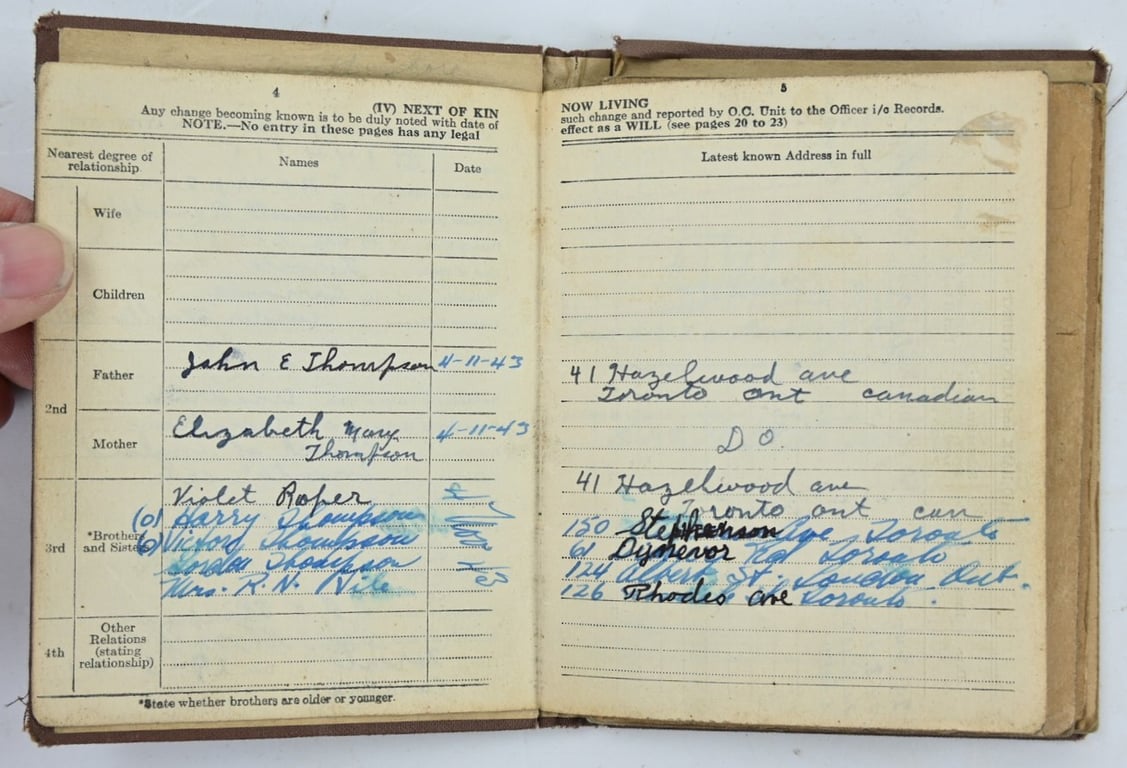 4
(IV) NEXT OF KIN
Any change becoming known is to be duly noted with date of
NOTE.—No entry in these pages has any legal
Nearest degree of relationship
Names
Date
Wife
Children
2nd
Father
John E Thompson 4-11-43
Mother
Elizabeth Mary 4-11-43
Thompson
3rd
*Brothers and Sisters
Violet Roper
(o) Harry Thompson
Victory Thompson
Thompson
Mrs. R. N.
4th
Other
Relations
(stating
relationship)
*State whether brothers are older or younger.
5
NOW LIVING
such change and reported by O.C. Unit to the Officer i/c Records.
effect as a WILL (see pages 20 to 23)
Latest known Address in full
41 Hazelwood ave
Toronto ont canadian
D O.
41 Hazelwood ave
Toronto ont can
150 Ave Toronto
61 Dynevor Rd Toronto
124 Albert St. London Ont.
126 Rhodes ave Toronto.